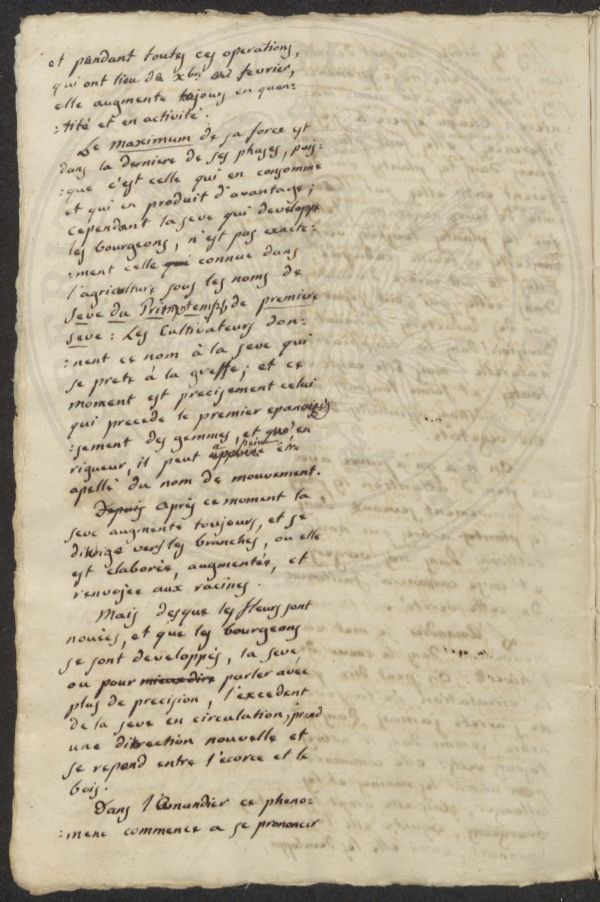 et pendant toutes ces operations,
qui ont lieu de xbre en fevrier,
elle augmente toujours en quan:
:tité et en activité.
Le maximum de sa force est
dans la derniere de ses phases, puis:
:que c'est celle qui en consomme
et qui en produit d'avantage;
cependant la seve qui developpe
les bourgeons, n'est pas exacte:
:ment celle connue dans
l'agriculture sous les noms de
seve du Printemps, de premiere
seve: Les Cultivateurs don:
:nent ce nom à la seve qui
se prete à la greffe; et ce
moment est precisement celui
qui precede le premier epanouis
:sement des gemmes, et qu'en
rigueur, il peut a peine être
apellé du nom de mouvement.
Depuis Après ce moment la
seve augmente toujours, et se
dirige vers les branches, ou elle
est elaborée, augmentée, et
renvojée aux racines.
Mais desque les fleurs sont
nouées, et que les bourgeons
se sont developpés, la seve
ou pour mieux dire parler avec
plus de precision, l'excedent
de la seve en circulation, prend
une direction nouvelle et
se repend entre l'ecorce et le
bois.
Dans l'Amandier ce pheno:
:mene commence a se prononcer